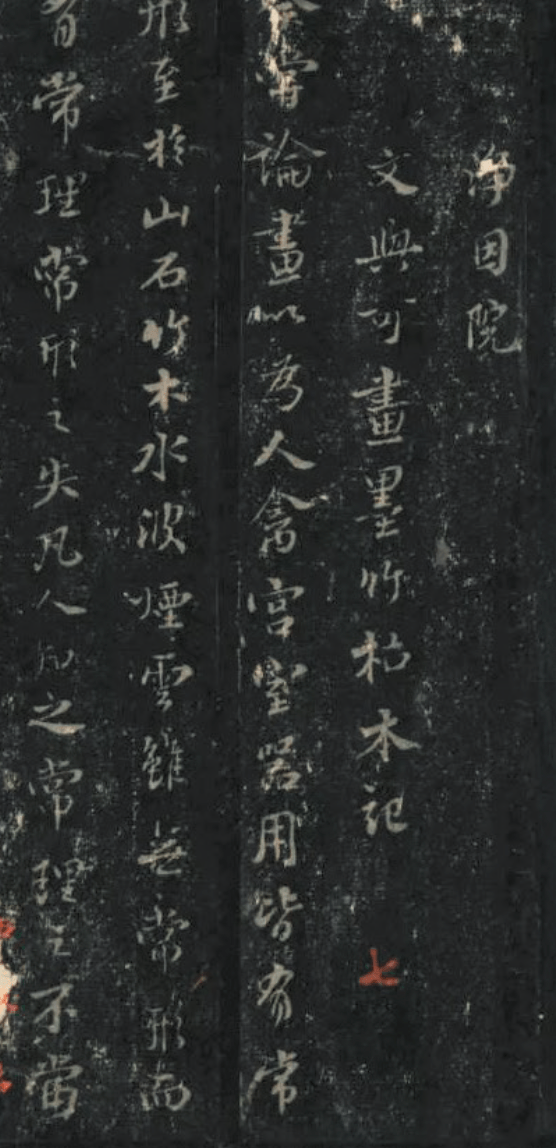 淨因院
文與可畫墨竹枯木記 七
嘗論畫以為人禽宮室器用皆有常
形至於山石竹木水波煙雲雖無常形而
有常理常形之失凡人知之常理之不當